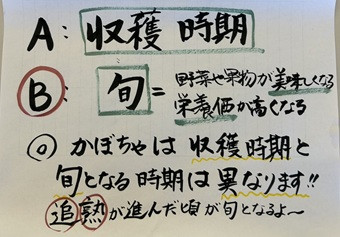 A: 収穫 時期
B: 旬 = 野菜や果物が美味しくなる
栄養価が高くなる
◎ かぼちゃは 収穫時期と
旬となる時期は 異なります!!
追熟が進んだ頃が旬となるよ〜